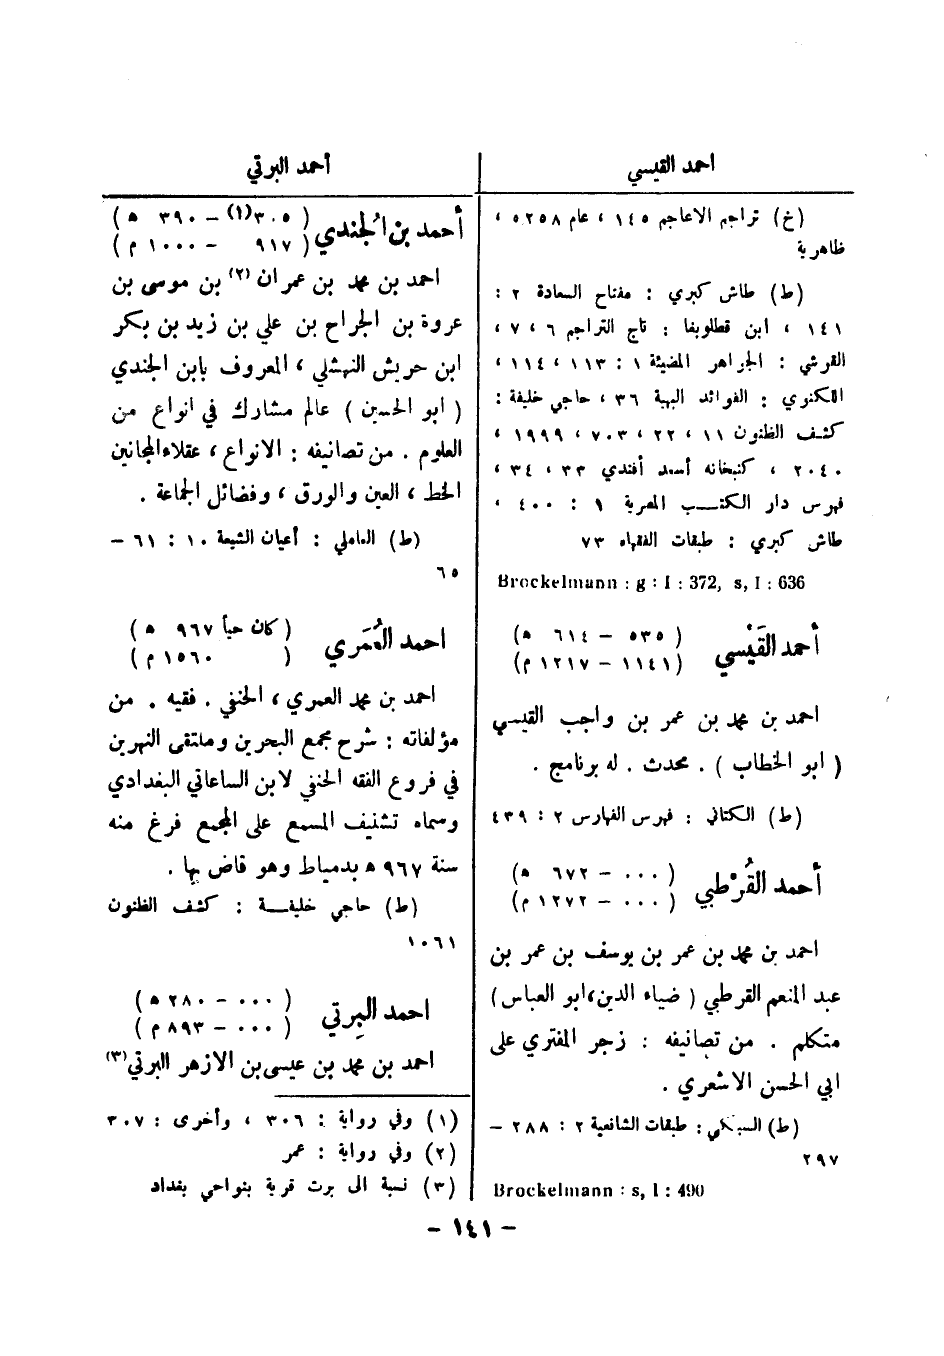 أحمد القيسي
(خ) تراجم الاعاجم ١٤٥ ، عام ٥٢٥٨ ،
ظاهرية
(ط) طاش كبري : مفتاح السعادة ٢ :
١٤١ ، ابن قطلوبغا : تاج التراجم ٦ ، ٧ ،
القرشي : الجواهر المضيئة ١ : ١١٣ ، ١١٤ ،
اللكنوي : الفوائد البهية ٣٦ ، حاجي خليفة :
كشف الظنون ١١ ، ٢٢ ، ٧٠٣ ، ١٩٩٩ ،
٢٠٤٠ ، كتبخانه أسعد أفندي ٣٣ ، ٣٤ ،
فهرس دار الكتب المصرية ١ : ٤٠٠ ،
طاش كبري : طبقات الفقهاء ٧٣
Brockelmann : g : I : 372, s, I : 636
أحمد القَيْسي ( ٥٣٥ – ٦١٤ ه )
( ١١٤١ – ١٢١٧ م )
احمد بن محمد بن عمر بن واجب القيسي
( ابو الخطاب ) . محدث . له برنامج .
(ط) الكتاني : فهرس الفهارس ٢ : ٤٣٩
أحمد القُرْطبي ( ٠٠٠ – ٦٧٢ ه )
( ٠٠٠ – ١٢٧٢ م )
احمد بن محمد بن عمر بن يوسف بن عمر بن
عبد المنعم القرطبي ( ضياء الدين، ابو العباس )
متكلم . من تصانيفه : زجر المفتري على
ابي الحسن الاشعري .
(ط) السبكي : طبقات الشافعية ٢ : ٢٨٨ –
٢٩٧
Brockelmann : s, I : 490
أحمد البرتي
أحمد بن الجُندي ( ٣٠٥(١) – ٣٩٠ ه )
( ٩١٧ – ١٠٠٠ م )
احمد بن محمد بن عمران (٢) بن موسى بن
عروة بن الجراح بن علي بن زيد بن بكر
ابن حريش النهشلي ، المعروف بابن الجندي
( ابو الحسين ) عالم مشارك في انواع من
العلوم . من تصانيفه : الانواع ، عقلاء المجانين
الخط ، العين والورق ، وفضائل الجماعة .
(ط) العاملي : أعيان الشيعة ١٠ : ٦١ –
٦٥
احمد العُمَري ( كان حياً ٩٦٧ ه )
( ١٥٦٠ م )
احمد بن محمد العمري ، الحنفي . فقيه . من
مؤلفاته : شرح مجمع البحرين وملتقى النهرين
في فروع الفقه الحنفي لابن الساعاتي البغدادي
وسماه تشنيف المسمع على المجمع فرغ منه
سنة ٩٦٧ ه بدمياط وهو قاض بها .
(ط) حاجي خليفة : كشف الظنون
١٠٦١
احمد البِرتي ( ٠٠٠ – ٢٨٠ ه )
( ٠٠٠ – ٨٩٣ م )
احمد بن محمد بن عيسى بن الازهر البرتي (٣)
(١) وفي رواية : ٣٠٦ ، وأخرى : ٣٠٧
(٢) وفي رواية : عمر
(٣) نسبة الى برت قرية بنواحي بغداد
– ١٤١ –